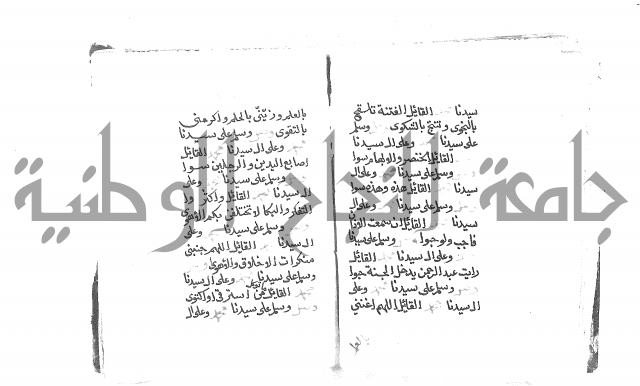 سيدنا القائل الفتنة تلقح
بالنجوى وتنتج بالشكوى وسلم
على سيدنا وعلى ال سيدنا
القائل الخنصر والابهام سوا
وسلم على سيدنا وعلى ال
سيدنا القائل هذه وهذه سوا
وسلم على سيدنا وعلى ال
سيدنا القائل ان سمعت الاذان
فاجب ولو حبوا وسلم على سيدنا
وعلى ال سيدنا القائل
رايت عبد الرحمن يدخل الجنة حبوا
وسلم على سيدنا وعلى
ال سيدنا القائل اللهم اغنني
بالعلم وزيّنّي بالحلم واكرمني
بالتقوى وسلم على سيدنا
وعلى ال سيدنا القائل
اصابع اليدين والرجلين سوا
وسلم على سيدنا وعلى
ال سيدنا القائل
وسلم على سيدنا وعلى
ال سيدنا القائل اللهم جنبني
منكرات الاخلاق والاهوى
وسلم على سيدنا وعلى ال سيدنا
القائل من استرقى او اكتوى
وسلم على سيدنا وعلى ال
جامعة النجاح الوطنية